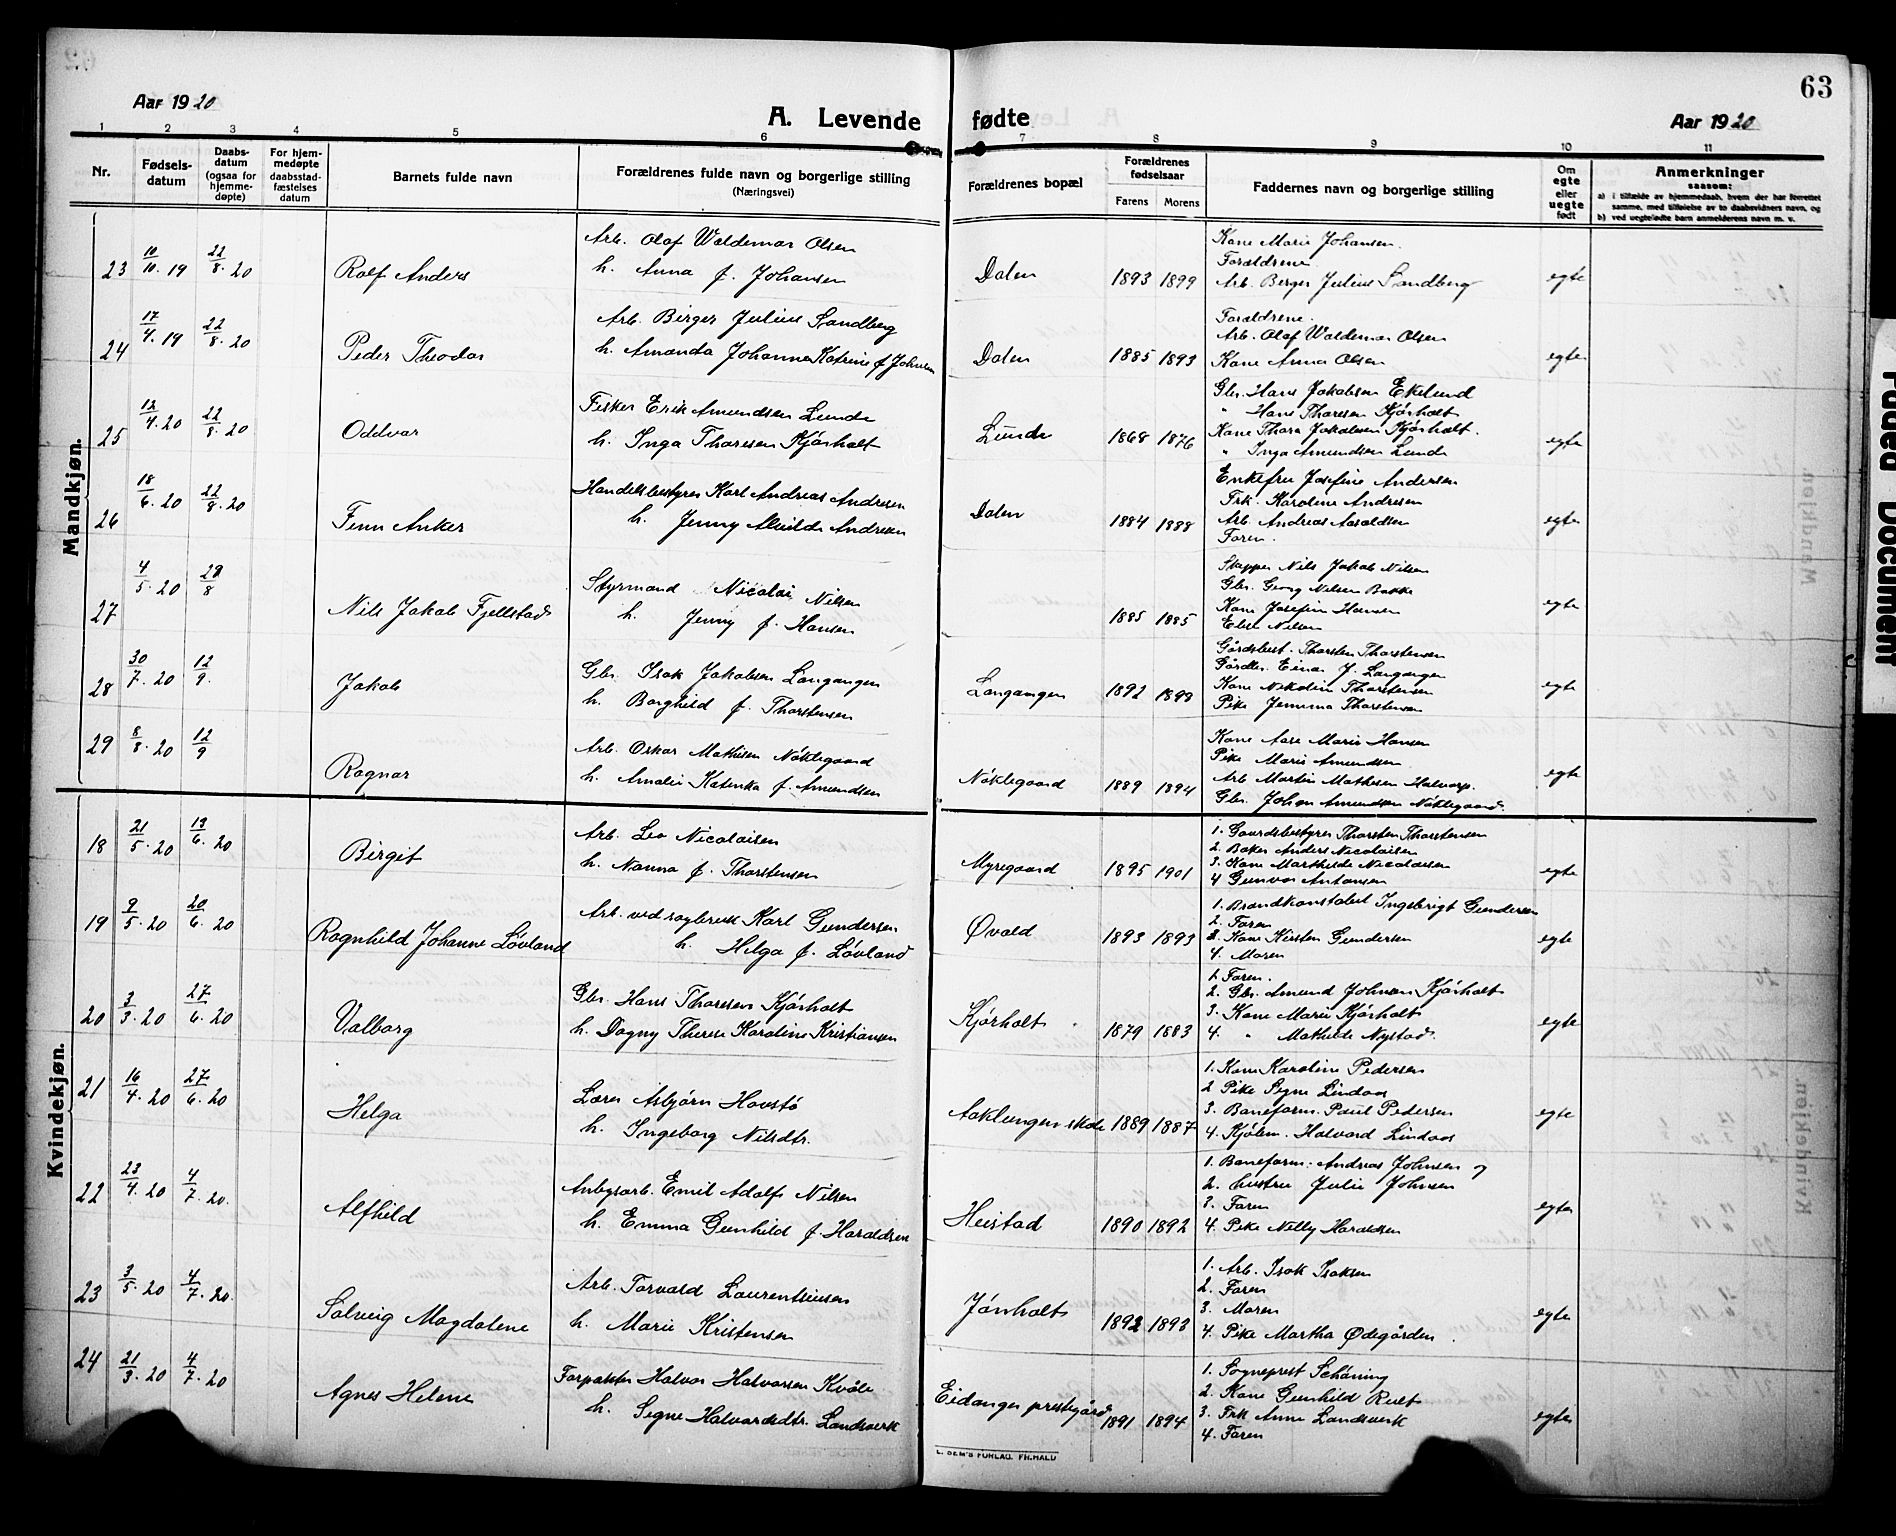 63
Aar 1920
A. Levende fødte
Aar 1920
1 2 3 4 5 6 7 8 9 10 11
Nr.
Fødsels-
datum
Daabs-
datum
(ogsaa for
hjemme-
døpte)
For hjem-
medøpte
daabsstad-
fæstelses
datum
Barnets fulde navn
Forældrenes fulde navn og borgerlige stilling
(Næringsvei)
Forældrenes bopæl
Forældrenes
fødselsaar
Farens Morens
Faddernes navn og borgerlige stilling
Om
egte
eller
uegte
født
Anmerkninger
saasom:
a) i tilfælde av hjemmedaab, hvem der har forrettet
samme, med tilføielse av to daabsvidners navn, og
b) ved uegtefødte barn anmelderens navn m. v.
Mandkjøn.
23 10/10. 19 22/8. 20
Rolf Anders
Arb. Olaf Waldemar Olsen
h. Anna f. Johansen
Dalen
1893 1899
Kone Marie Johansen.
Forældrene
Arb. Berger Julius Sandberg
egte
24 17/4. 19 22/8. 20
Peder Theodor
Arb. Birger Julius Sandberg
h. Amanda Johanne Katrine f. Johnsen
Dalen
1885 1893
Forældrene.
Arb. Olaf Waldemar Olsen
Kone Anna Olsen
egte
25 12/4. 20 22/8. 20
Oddvar
Fisker Erik Amundsen Lunde
h. Inga Thoresen Kjørholt
Lunde
1868 1876
Gbr. Hans Jakobsen Ekelund
" Hans Thoresen Kjørholt
Kone Thora Jakobsen Kjørholt.
" Inga Amundsen Lunde
egte
26 18/6. 20 22/8. 20
Finn Anker
Handelsbestyrer Karl Andreas Andresen
h. Jenny Alvilde Andresen
Dalen
1884 1888
Enkefru Josefine Andersen
Frk. Karoline Andresen
Arb. Andreas Aaraldsen
Faren.
egte
27 4/5. 20 29/8
Nils Jakob Fjellstad
Styrmand Nicolai Nilsen
h. Jenny f. Hansen
1885 1885
Skipper Nils Jakob Nilsen
Gbr. Georg Nilsen Bakke
Kone Josefine Hansen
Else Nilsen
egte
28 30/7. 20 12/9.
Jakob
Gbr. Isak Jakobsen Langangen
h. Borghild f. Thorstensen
Langangen
1892 1899
Gårdsbest. Thorsten Thorstensen
Gårdbr. Einar J. Langangen
Kone Nikoline Thorstensen
Pike Jemima Thorstensen
egte
29 8/8. 20 12/9
Ragnar
Arb. Oskar Mathisen Nøklegaard
h. Amalie Katinka f. Amundsen
Nøklegaard
1889 1894
Kone Aase Marie Hansen
Pike Marie Amundsen
Arb Martin Mathisen Halvarp.
Gbr. Johan Amundsen Nøklegaard.
egte
Kvindekjøn.
18 21/5. 20 13/6. 20
Birgit
Arb. Leo Nicolaisen
h. Nanna f. Thorstensen
Myregaard
1895 1901
1. Gaardsbestyrer Thorsten Thorstensen
2. Baker Anders Nicolaisen
3. Kone Marthilde Nicolaisen
4 Gunvor Antonsen
egte
19 9/5. 20 20/6. 20
Ragnhild Johanne Løvland
Arb. ved raglverk Karl Gundersen
h. Helga f. Løvland
Øvald
1893 1893
1. Brandkonstabel Ingebrigt Gundersen
2. Faren
3. Kone Kirsten Gundersen
4. Moren
egte
20 3/3. 20 27/6. 20
Valborg
Gbr. Hans Thoresen Kjørholt
h. Dagny Therese Karoline Kristiansen
Kjørholt
1879 1883
1. Faren.
2. Gbr. Amund Johnsen Kjørholt
3. Kone Marie Kjørholt
4. " Mathilde Nystad.
egte
21 16/4. 20 27/6. 20
Helga
Lærer Asbjørn Hovstø
h. Ingeborg Nilsdtr.
Aaklungen skole
1889 1887
1. Kone Karoline Pedersen
2 Pike Signe Lindaas
3. Baneform. Paul Pedersen
4. Kjølm. Halvard Lindaas
egte
22 23/4. 20 4/7. 20.
Alfhild
Anlegsarb. Emil Adolf Nilsen
h. Emma Gunhild f. Haraldsen
Heistad
1890 1892
1. Baneform. Andreas Johnsen og
2. hustru Julie Johnsen
3. Faren
4. Pike Nelly Haraldsen
egte
23 3/5. 20 4/7. 20.
Solveig Magdalene
Arb. Torvald Laurentiusen
h. Marie Kristensen
Jønholt
1892 1893
1. Arb. Isak Isaksen
2. Faren
3. Moren
4. Pike Martha Ødegården.
egte
24 21/3. 20 4/7. 20
Agnes Helene
Forpakter Halvor Halvorsen Kvåle
h. Signe Halvardsdtr. Landsverk
Eidanger prestegård
1891 1894
1. Sogneprest Schöning
2. Kone Gunhild Ruet
3. Frk Anne Landsverk
4. Faren
egte
E. SEM'S FORLAG. FR.HALD
Faded Document